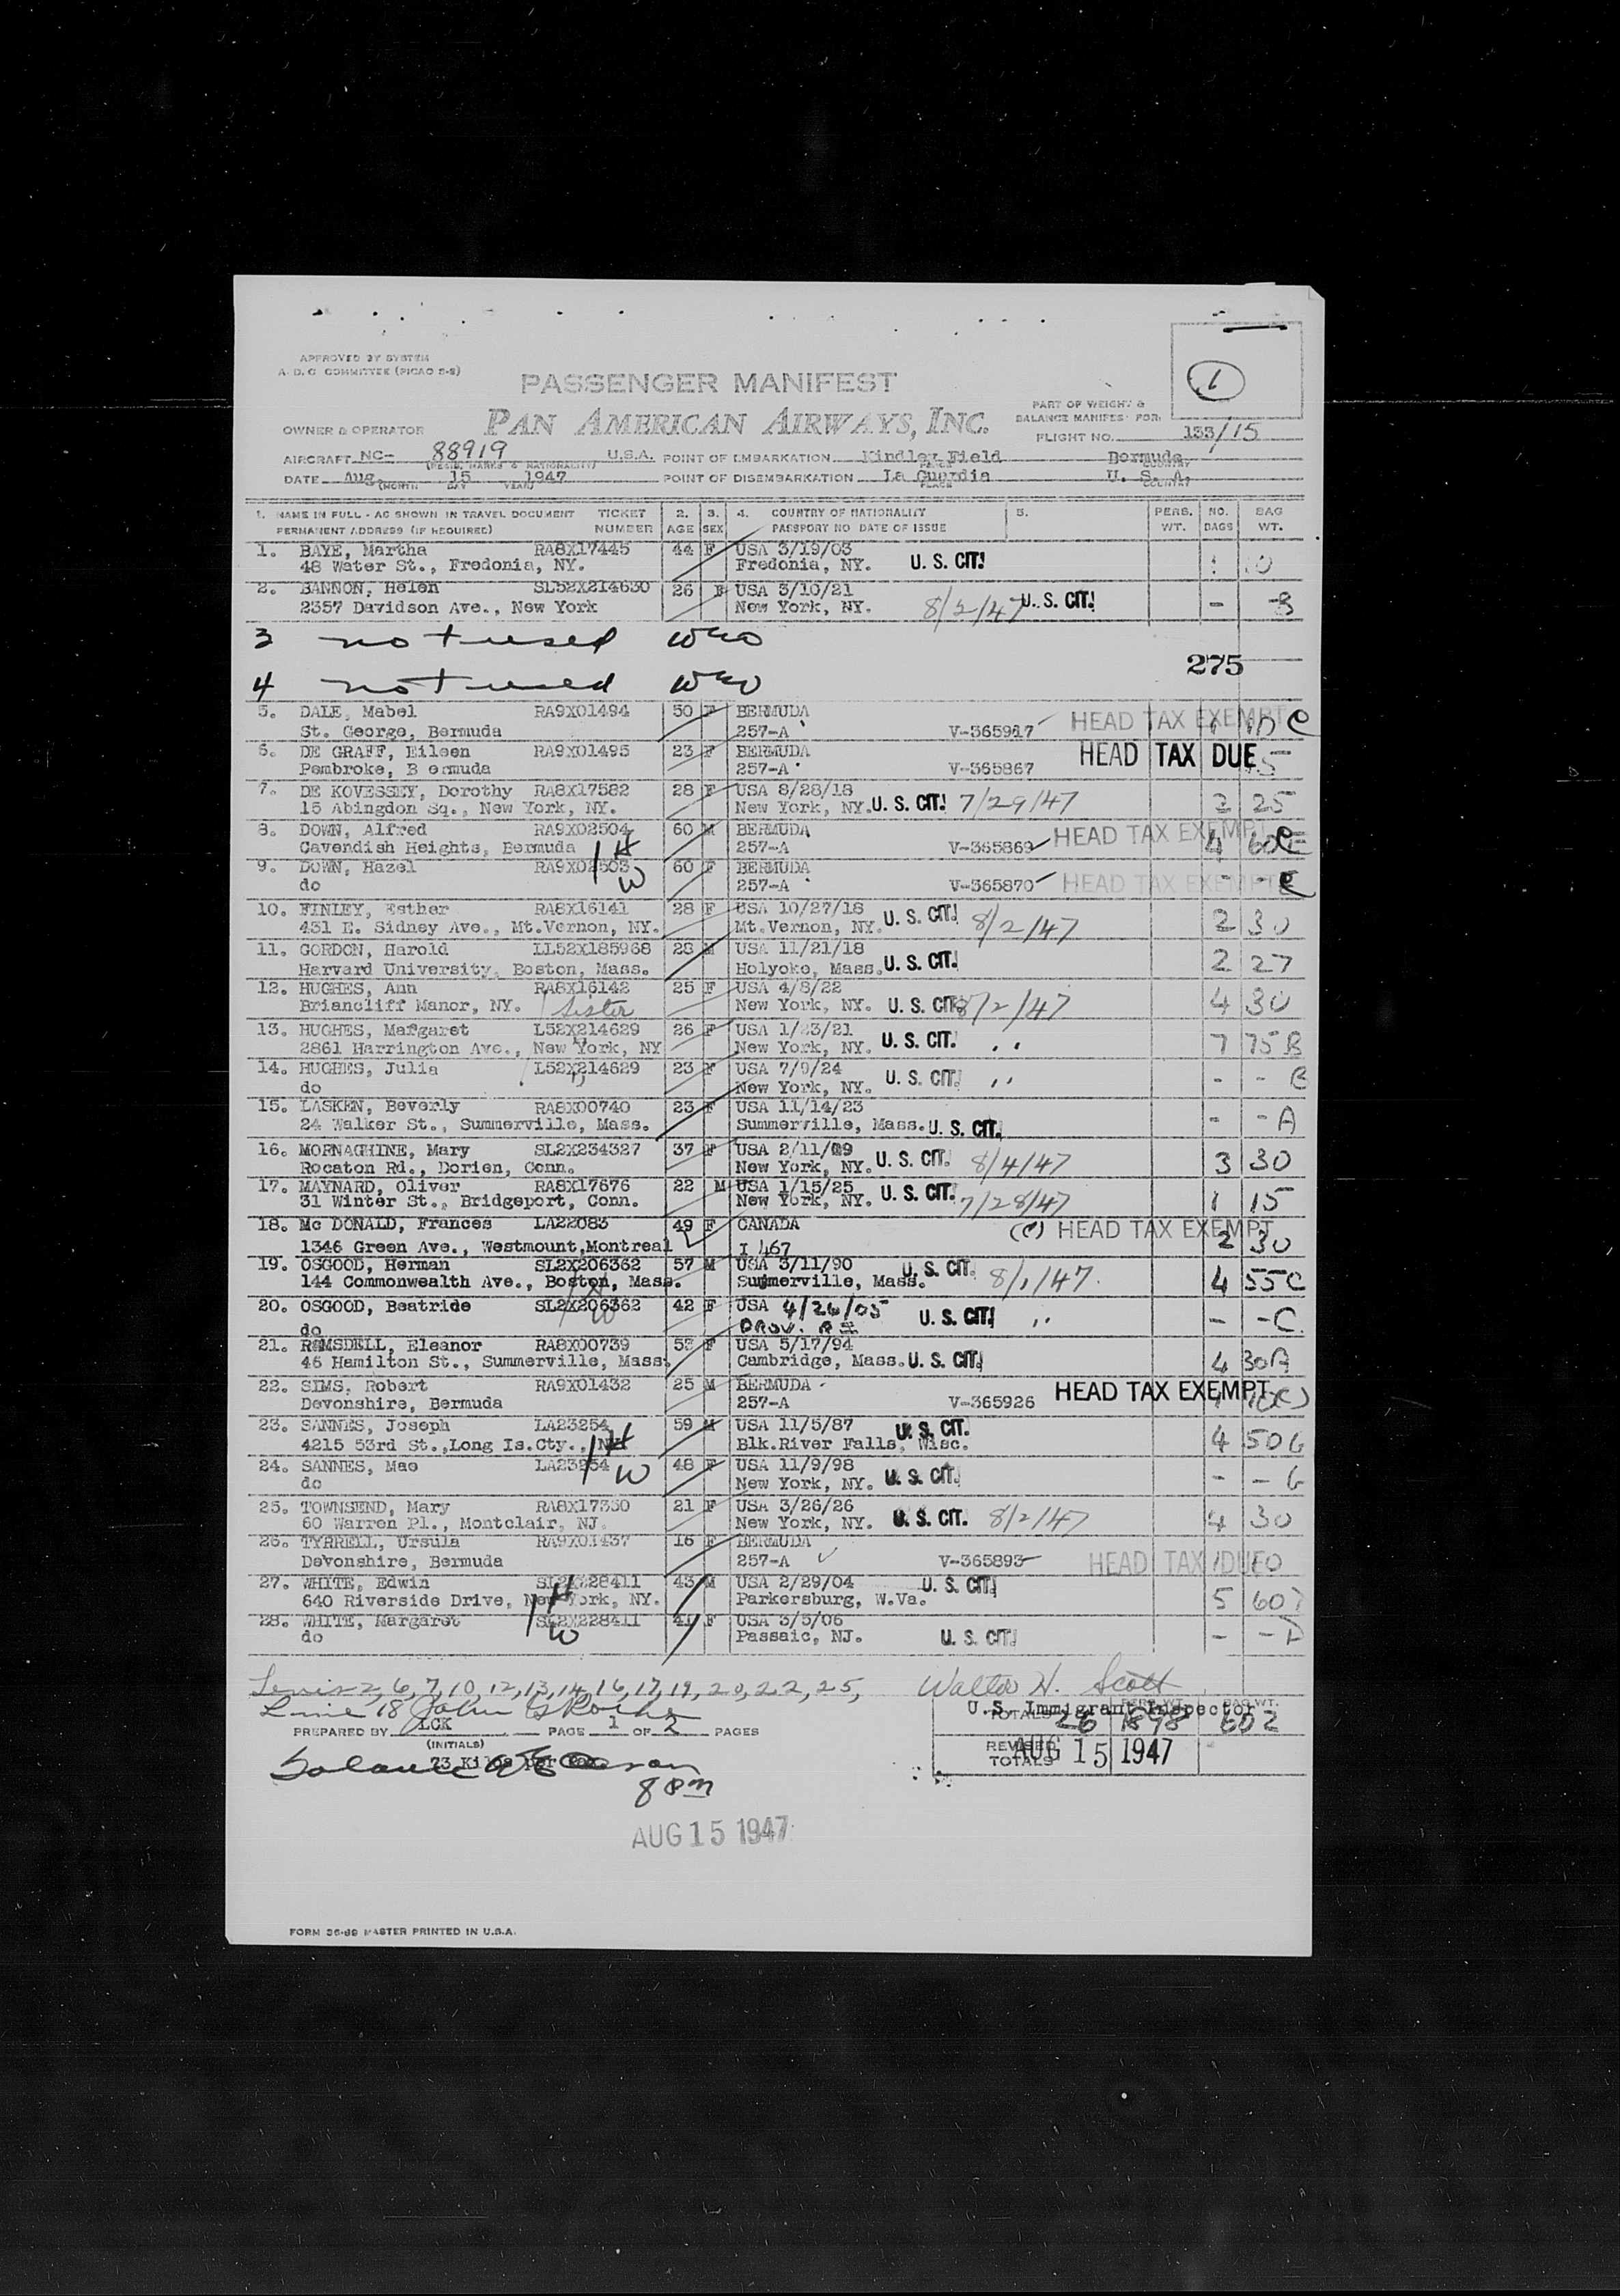 APPROVED BY SYSTEM
A.D.C COMMITTEE (PICAO S-2)
PASSENGER MANIFEST
1
PAN AMERICAN AIRWAYS, INC.
PART OF WEIGHT &
BALANCE MANIFEST FOR:
OWNER & OPERATOR
FLIGHT NO. 133/15
AIRCRAFT NC- 88919 U.S.A. POINT OF EMBARKATION Kindley Field Bermuda
DATE Aug. 15 1947 POINT OF DISEMBARKATION La Guardia U. S. A.
(MONTH DAY YEAR) PLACE COUNTRY
1. NAME IN FULL - AS SHOWN IN TRAVEL DOCUMENT TICKET 2. 3. 4. COUNTRY OF NATIONALITY 5. PERS. NO. BAG
PERMANENT ADDRESS (IF REQUIRED) NUMBER AGE SEX PASSPORT NO DATE OF ISSUE WT. BAGS WT.
1. BAYE, Martha RA8X17445 44 F USA 3/19/03
48 Water St., Fredonia, NY. Fredonia, NY. U. S. CIT. 1 10
2. BANNON, Helen SL52X214630 26 F USA 3/10/21
2357 Davidson Ave., New York New York, NY. 8/2/47 U. S. CIT. - -B
3 not used
275
4 not used
5. DALE, Mabel RA9X01494 50 F BERMUDA
St. George, Bermuda 257-A V-365917 HEAD TAX EXEMPT 1 10 C
6. DE GRAFF, Eileen RA9X01495 23 F BERMUDA HEAD TAX DUE
Pembroke, B ermuda 257-A V-365867
7. DE KOVESSEY, Dorothy RA8X17582 28 F USA 8/28/18
15 Abingdon Sq., New York, NY. New York, NY. U. S. CIT. 7/29/47 2 25
8. DOWN, Alfred RA9X02504 60 M BERMUDA HEAD TAX EXEMPT
Cavendish Heights, Bermuda H 257-A V-365869 4 60
9. DOWN, Hazel RA9X02503 60 F BERMUDA
do W 257-A V-365870 HEAD TAX EXEMPT - -
10. FINLEY, Esther RA8X16141 28 F USA 10/27/18
431 E. Sidney Ave., Mt.Vernon, NY. Mt.Vernon, NY. U. S. CIT. 8/2/47 2 30
11. GORDON, Harold LL52X185968 28 M USA 11/21/18
Harvard University, Boston, Mass. Holyoke, Mass. U. S. CIT. 2 27
12. HUGHES, Ann RA8X16142 25 F USA 4/8/22
Briancliff Manor, NY. Sister New York, NY. U. S. CIT. 8/2/47 4 30
13. HUGHES, Margaret L52X214629 26 F USA 1/23/21
2861 Harrington Ave., New York, NY New York, NY. U. S. CIT. ,, 7 75 B
14. HUGHES, Julia L52X214629 23 F USA 7/9/24
do New York, NY. U. S. CIT. ,, - - B
15. LASKEN, Beverly RA8X00740 23 F USA 11/14/23
24 Walker St., Summerville, Mass. Summerville, Mass. U. S. CIT. - - A
16. MORNAGHINE, Mary SL2X234327 37 F USA 2/11/09
Rocaton Rd., Dorien, Conn. New York, NY. U. S. CIT. 8/4/47 3 30
17. MAYNARD, Oliver RA8X17676 22 M USA 1/15/25
31 Winter St., Bridgeport, Conn. New York, NY. U. S. CIT. 7/28/47 1 15
18. Mc DONALD, Frances LA22083 49 F CANADA (C) HEAD TAX EXEMPT
1346 Green Ave., Westmount,Montreal I 467 2 30
19. OSGOOD, Herman SL2X206362 57 M USA 3/11/90
144 Commonwealth Ave., Boston, Mass. H Summerville, Mass. U. S. CIT. 8/1/47. 4 55 C
20. OSGOOD, Beatride SL2X206362 42 F USA 4/26/05
do W PROV. RI U. S. CIT. ,, - - C
21. RAMSDELL, Eleanor RA8X00739 53 F USA 5/17/94
46 Hamilton St., Summerville, Mass. Cambridge, Mass. U. S. CIT. 4 30 A
22. SIMS, Robert RA9X01432 25 M BERMUDA HEAD TAX EXEMPT
Devonshire, Bermuda 257-A V-365926 (C)
23. SANNES, Joseph LA23254 59 M USA 11/5/87
4215 53rd St.,Long Is.Cty., NY H Blk.River Falls, Wisc. U. S. CIT. 4 50 G
24. SANNES, Mae LA23254 48 F USA 11/9/98
do W New York, NY. U. S. CIT. - - G
25. TOWNSEND, Mary RA8X17330 21 F USA 3/26/26
60 Warren Pl., Montclair, NJ. New York, NY. U. S. CIT. 8/2/47 4 30
26. TYRRELL, Ursula RA9X01437 16 F BERMUDA
Devonshire, Bermuda 257-A V-365893 HEAD TAX DUE 1 10
27. WHITE, Edwin SL2X228411 43 M USA 2/29/04
640 Riverside Drive, New York, NY. H Parkersburg, W.Va. U. S. CIT. 5 60 D
28. WHITE, Margaret SL2X228411 41 F USA 3/5/06
do W Passaic, NJ. U. S. CIT. - - D
2, 6, 7, 10, 12, 13, 14, 16, 17, 19, 20, 22, 25,
Walter H. Scott
Line 18 John
U.S. Immigrant Inspector
PREPARED BY LCK PAGE 1 OF 2 PAGES
(INITIALS)
TOTALS 26 1898 602
REVISED TOTALS
AUG 15 1947
73 Kilos per
8 pm
AUG 15 1947
FORM 36-99 MASTER PRINTED IN U.S.A.